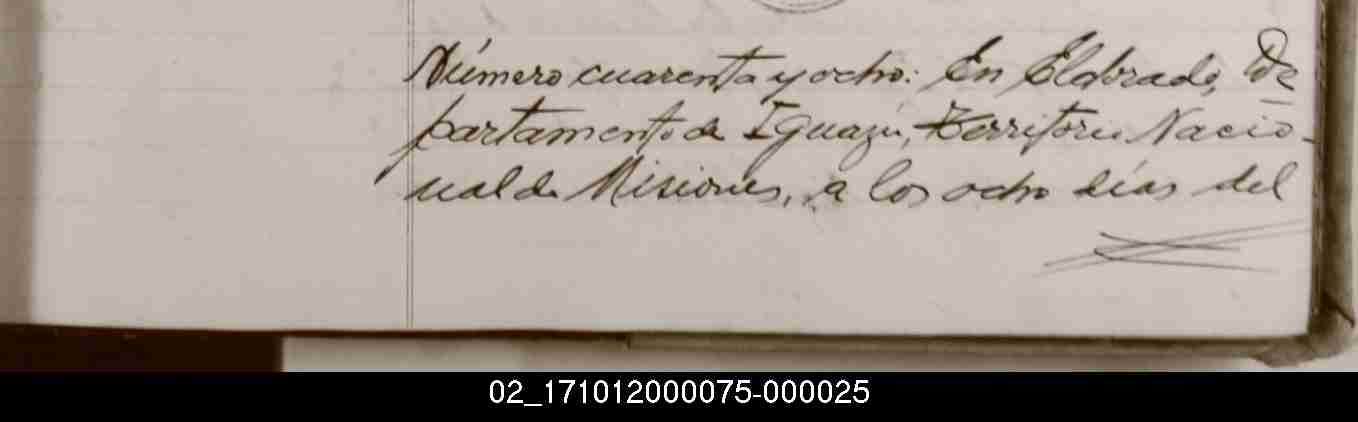 Número cuarenta y ocho: En Eldorado, De
partamento de Iguazú, Territorio Nacio-
nal de Misiones, a los ocho días del
02_171012000075-000025